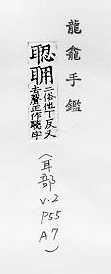 龍龕手鑑
聦聊二俗他丁反又
去聲正作聽字
(耳部
V.2
P55
A7)